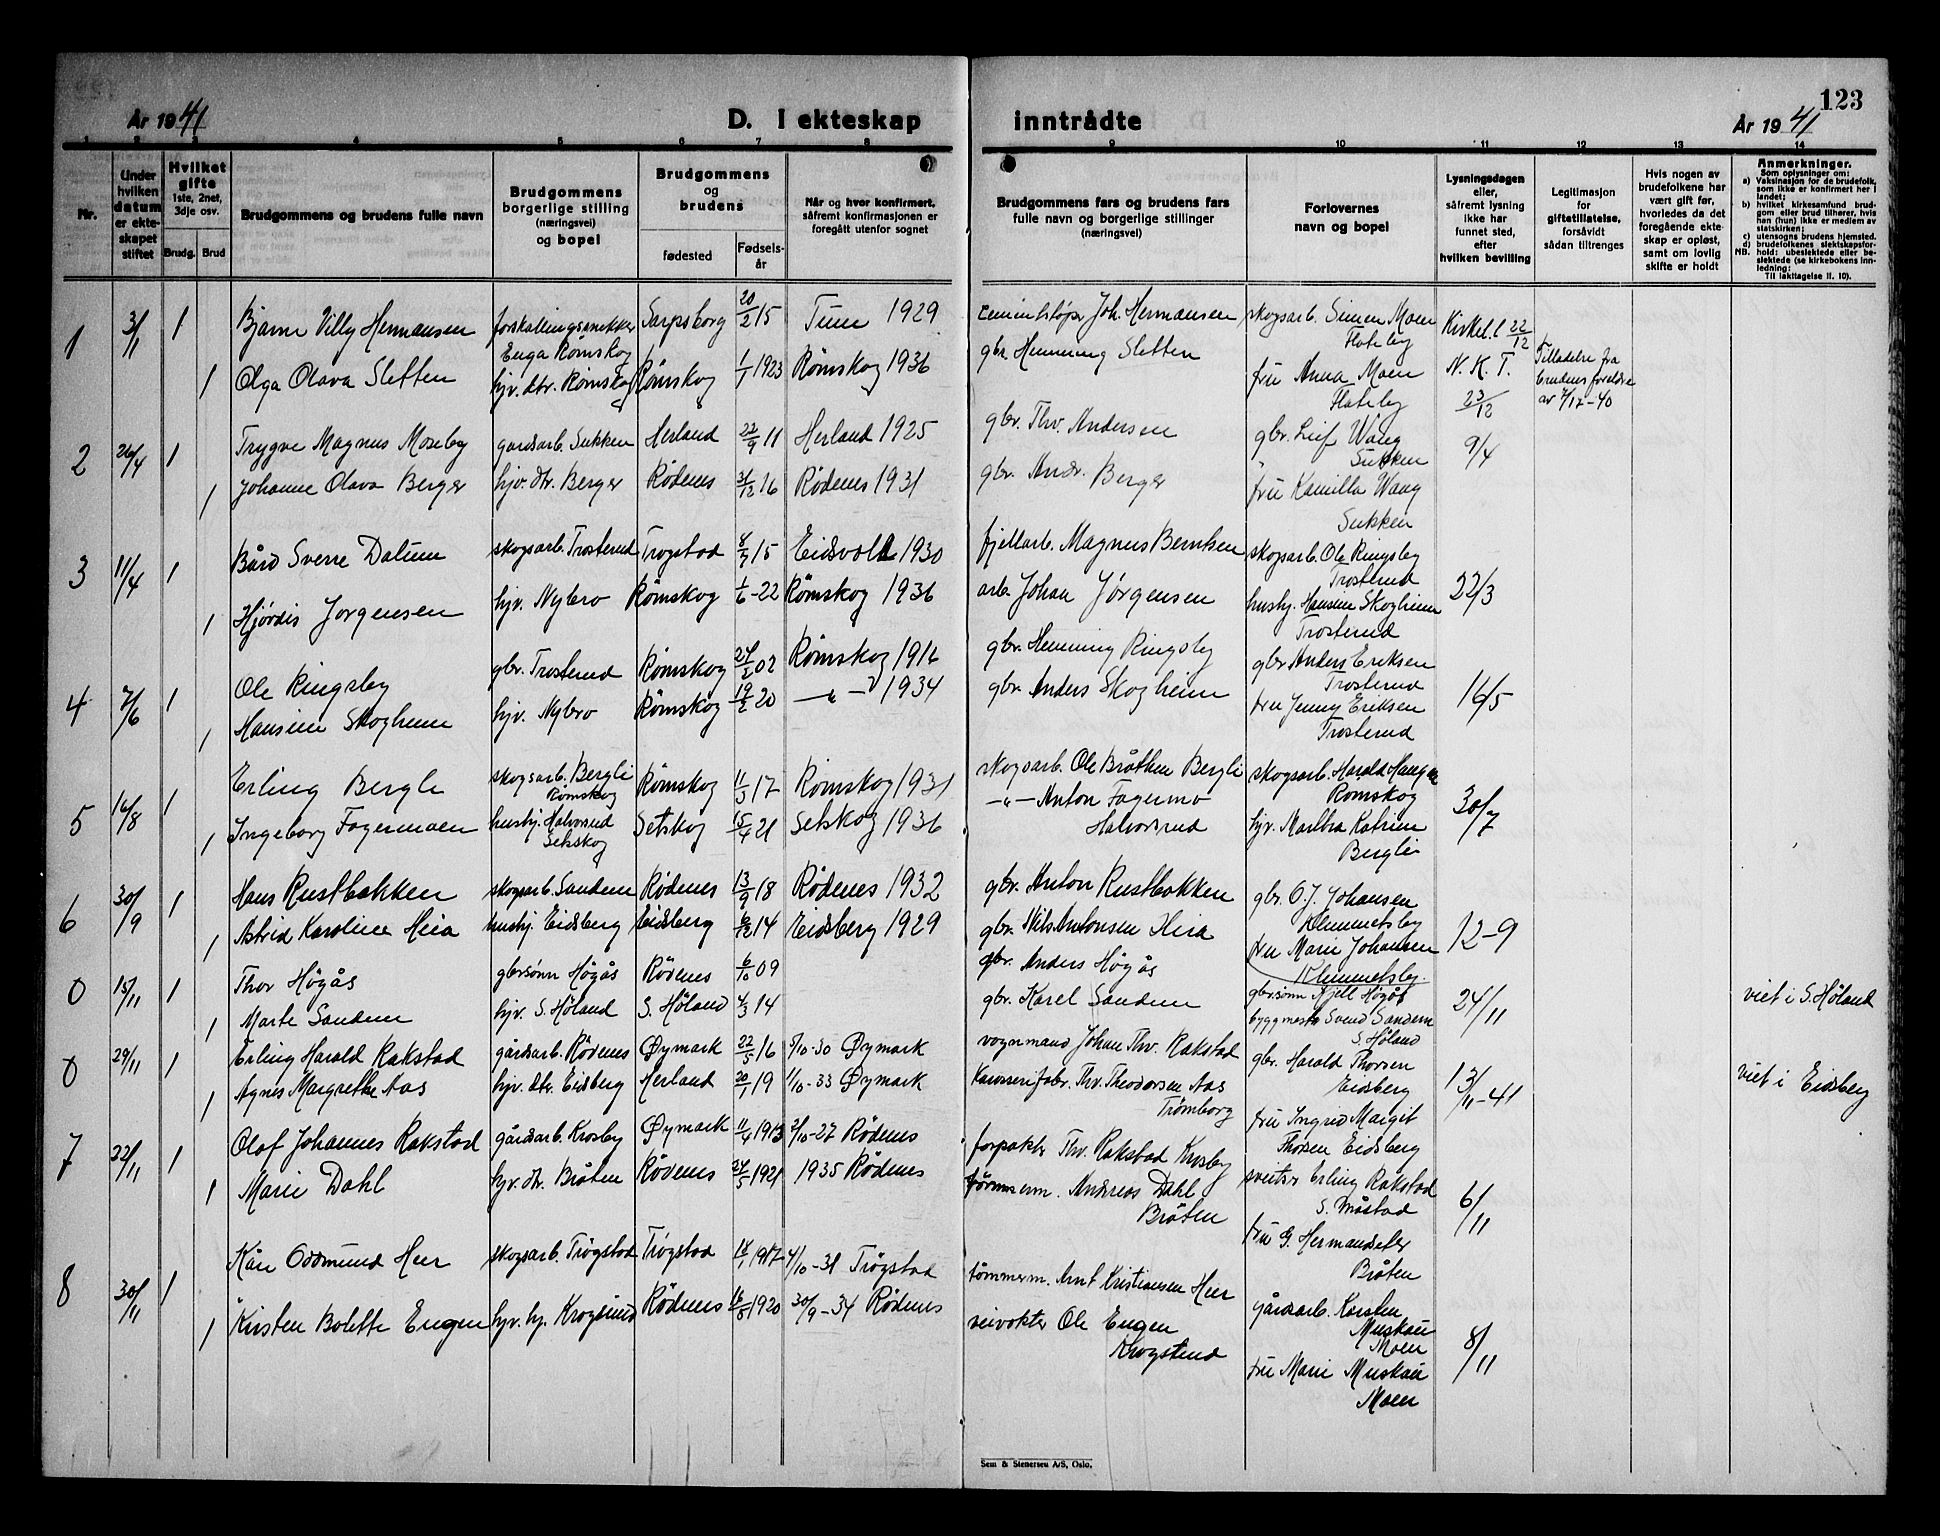 123
År 1941
D. I ekteskap inntrådte
År 1941
1 2 3 4 5 6 7 8 9 10 11 12 13 14
Nr.
Under hvilken datum er ekteskapet stiftet
Hvilket gifte 1ste, 2net, 3dje osv.
Brudg. Brud
Brudgommens og brudens fulle navn
Brudgommens borgerlige stilling (næringsvei) og bopel
Brudgommens og brudens
fødested
Fødsels-år
Når og hvor konfirmert, såfremt konfirmasjonen er foregått utenfor sognet
Brudgommens fars og brudens fars fulle navn og borgerlige stillinger (næringsvei)
Forlovernes navn og bopel
Lysningsdagen eller, såfremt lysning ikke har funnet sted, efter hvilken bevilling
Legitimasjon for giftetillatelse, forsåvidt sådan tiltrenges
Hvis nogen av brudefolkene har vært gift før, hvorledes da det foregående ekteskap er opløst, samt om lovlig skifte er holdt
Anmerkninger.
Som oplysninger om:
a) Vaksinasjon for de brudefolk, som ikke er konfirmert her i landet;
b) hvilket kirkesamfund brudgom eller brud tilhører, hvis han (hun) ikke er medlem av statskirken;
c) utensogns brudens hjemsted.
d) brudefolkenes slektskapsforhold: ubeslektede eller beslektede (se kirkebokens innledning:
NB. Til iakttagelse II. 10).
1 3/1 1 Bjarne Villy Hermansen forskalingssnekker Enga Rømskog Sarpsborg 20/2 15 Tune 1929 Joh. Hermansen skogsarb. Simen Moen Flateby Kirkel. l 22/12
1 Olga Olava Sletten hjv. dtr. Rømskog Rømskog 1/1 1923 Rømskog 1936 gbr. Henning Sletten fru Anna Moen Flateby N. K. T. 23/12 Tilladelse fra brudens foreldre av 7/12-40
2 26/4 1 Trygve Magnus Moseby gardsarb. Sukken Herland 22/9 11 Herland 1925 gbr. Thv. Andersen gbr. Leif Wang Sukken 9/4
1 Johanne Olava Berger hjv. dtr. Berger Rødenes 31/12 16 Rødenes 1931 gbr. Andr. Berger fru Kamilla Wang Sukken
3 11/4 1 Bård Sverre Dalum skogsarb. Trosterud Trøgstad 8/7 15 Eidsvoll 1930 fjellarb. Magnus Berntsen skogsarb. Ole Ringsby Trosterud 22/3
1 Hjørdis Jørgensen hjv. Nybro Rømskog 1/6-22 Rømskog 1936 arb. Johan Jørgensen hushj. Hansine Skogheim Trosterud
4 7/6 1 Ole Ringsby gbr. Trosterud Rømskog 24/2 02 Rømskog 1916 gbr. Henning Ringsby gbr Anders Eriksen Trosterud 16/5
1 Hansine Skogheim hjv. Nybro Rømskog 19/2 20 —"— 1934 gbr. Anders Skogheim fru Jenny Eriksen Trosterud
5 16/8 1 Erling Bergli skogsarb. Bergli Rømskog Rømskog 11/3 17 Rømskog 1931 skogsarb. Ole Bråthen Bergli skogsarb. Harald Haugen Rømskog 30/7
1 Ingeborg Fagermoen hushj. Halvorsrud Setskog Setskog 15/4 21 Setskog 1936 —"— Anton Fagermo Halvorsrud hjv. Martha Katrine Bergli
6 30/9 1 Hans Rustbakken skogsarb. Sandem Rødenes 13/9 18 Rødenes 1932 gbr. Anton Rustbakken gbr. O. J. Johansen Klemmetsby 12-9
1 Astrid Karoline Heia hushj. Eidsberg Eidsberg 6/12 14 Eidsberg 1929 gbr. Nils Antonsen Heia fru Marie Johansen Klemmetsby.
0 15/11 1 Thor Høgås gbr.sønn Høgås Rødenes 6/10 09 gbr. Anders Høgås gbr.sønn Kjell Høgås 24/11 viet i S. Høland
1 Marte Sandem hjv. S. Høland S. Høland 4/3 14 gbr. Karel Sandem byggmester Svend Sandem S. Høland
0 29/11 1 Erling Harald Rakstad gårdsarb. Rødenes Øymark 22/5 16 5/10-30 Øymark vognmand Johan Thv. Rakstad gbr. Harald Thorsen Eidsberg 13/11-41 viet i Eidsberg
1 Agnes Margrethe Aas hjv. dtr. Eidsberg Herland 20/1 19 1/10-33 Øymark Karosserifabr. Thv. Theodorsen Aas Trømborg fru Ingrid Margit Thorsen Eidsberg
7 22/11 1 Olaf Johannes Rakstad gårdsarb. Krosby Øymark 11/4 1913 2/10-27 Rødenes forpakter Thv. Rakstad Krosby sveitser Erling Rakstad S. Måstad 6/11
1 Marie Dahl hjv. dtr. Bråten Rødenes 24/5 1921 1935 Rødenes tømmerm. Andreas Dahl Bråten fru G. Hermandseter Bråten
8 30/11 1 Kåre Oddmund Heer skogsarb. Trøgstad Trøgstad 14/1 1917 4/10-31 Trøgstad tømmerm. Arnt Kristiansen Heer gårdsarb. Karsten Muskaui Moen 8/11
1 Kirsten Bolette Engen hjv. hj. Krogstund Rødenes 16/8 1920 30/9-34 Rødenes veivokter Ole Engen Krogstund fru Marie Muskaui Moen
Sem & Stenersen A/S, Oslo.